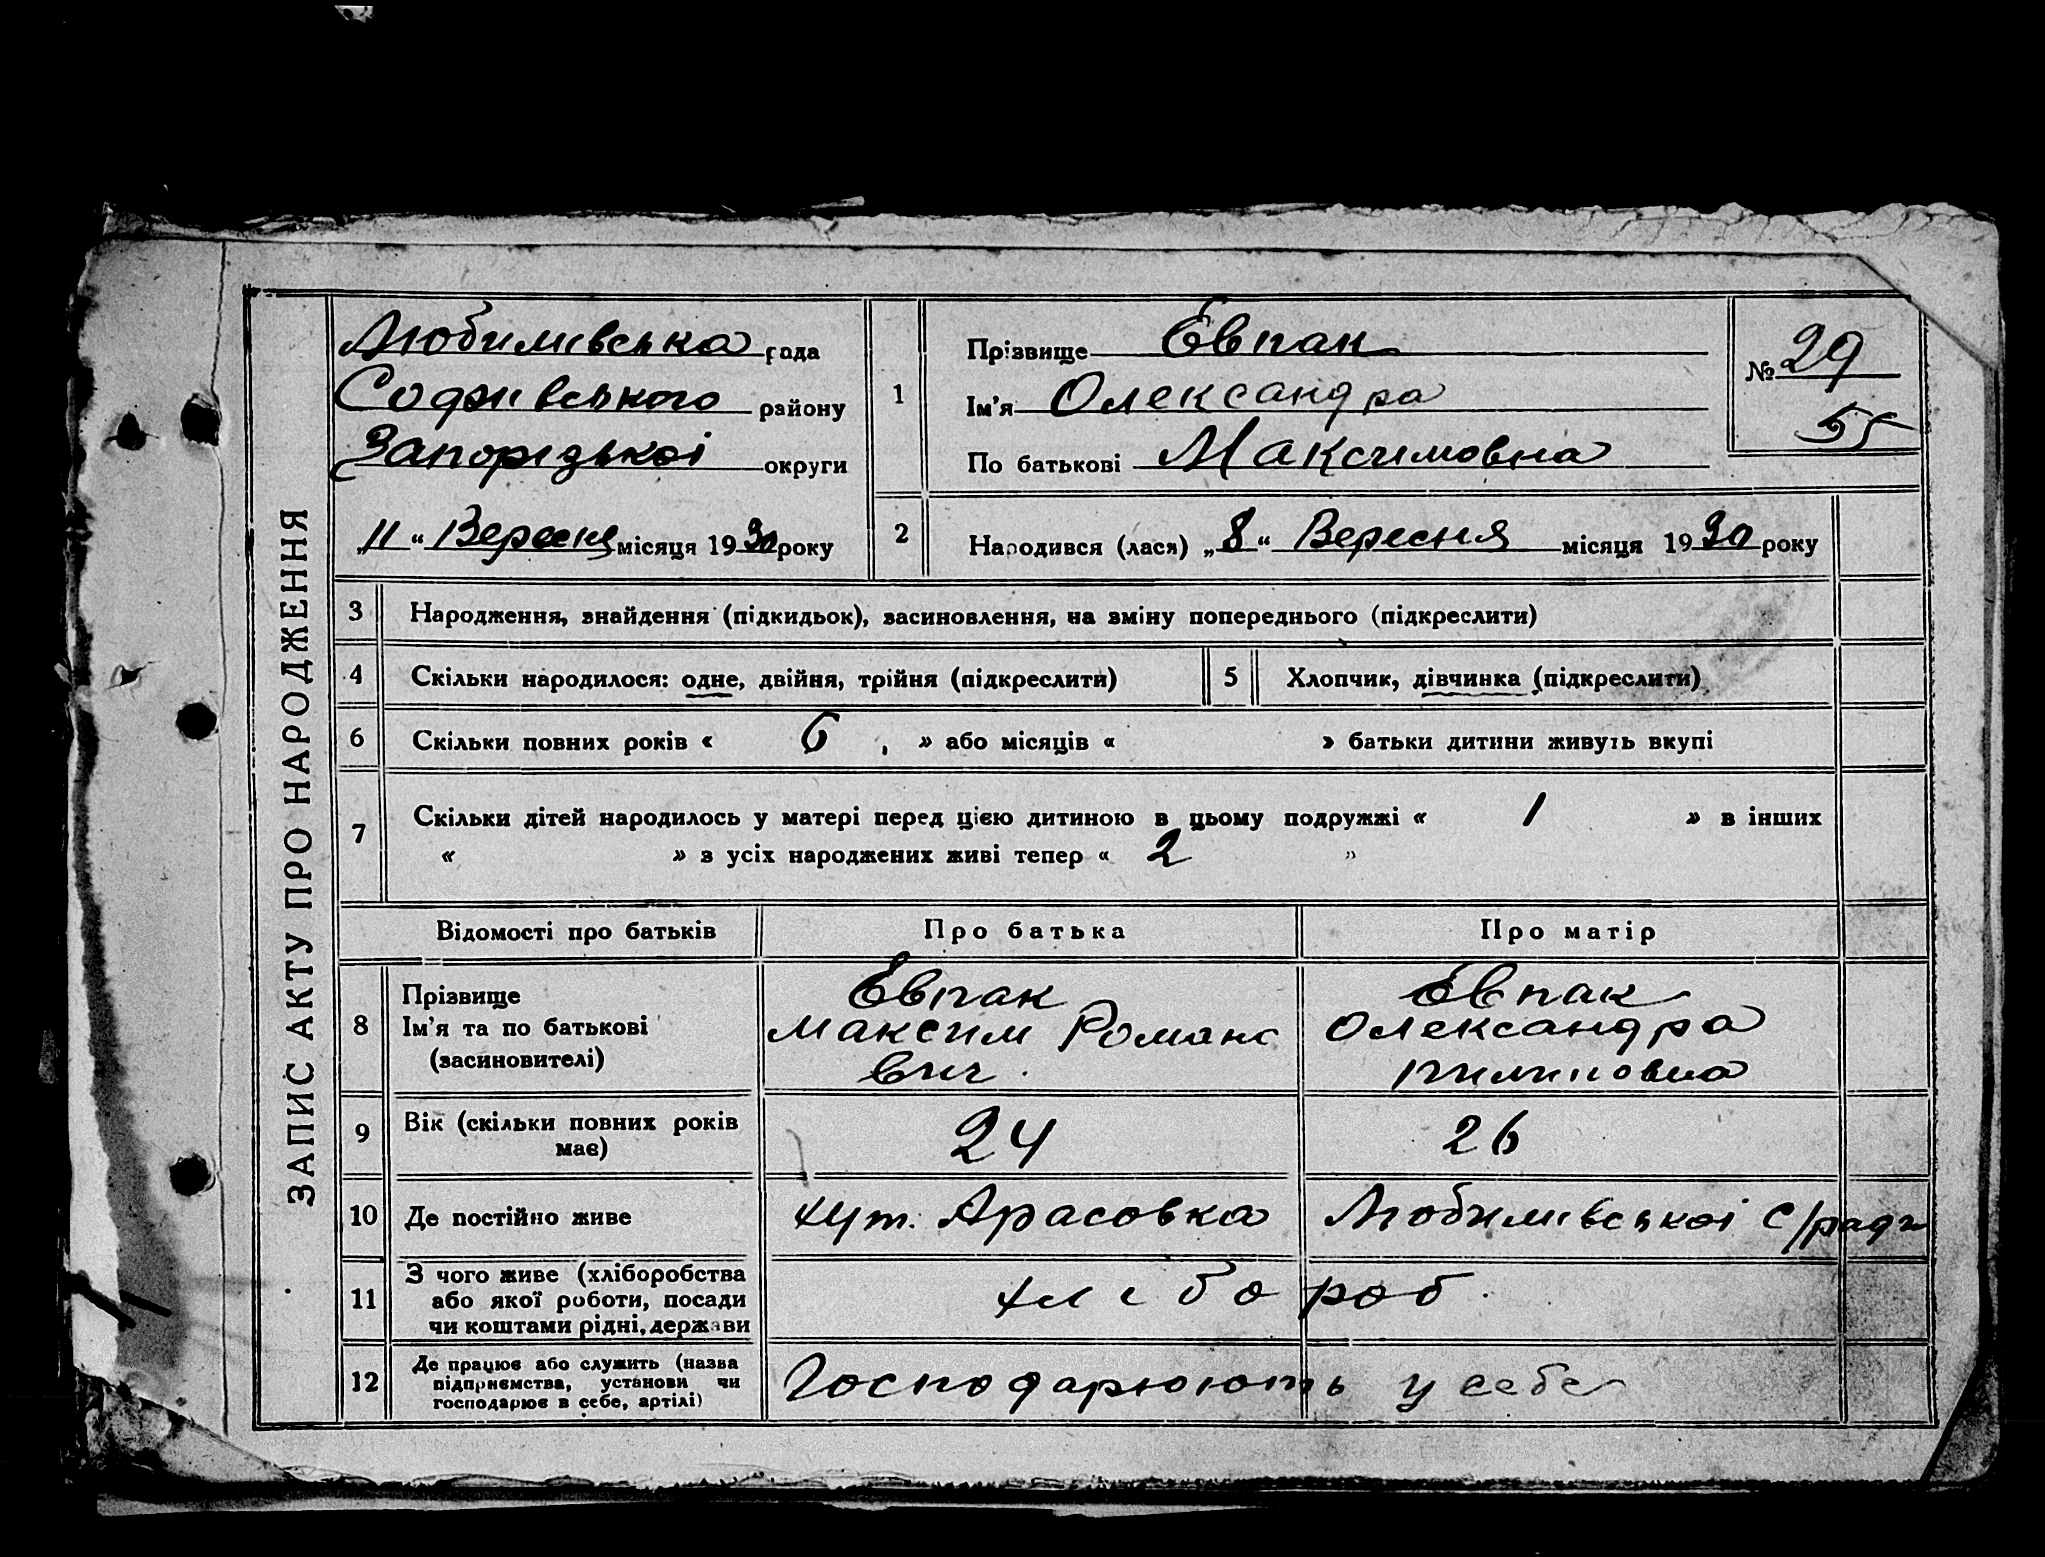 ЗАПИС АКТУ ПРО НАРОДЖЕННЯ
Любимівська рада
Софиївського району
Запорізької округи
„11“ Вересня місяця 1930 року
1
Прізвище Евпак
Ім'я Олександра
По батькові Максимовна
№ 29
55
2 Народився (лася) „8“ Вересня місяця 1930 року
3 Народження, знайдення (підкидьок), засиновлення, на зміну попереднього (підкреслити)
4 Скільки народилося: одне, двійня, трійня (підкреслити)
5 Хлопчик, дівчинка (підкреслити)
6 Скільки повних років « 6 » або місяців « » батьки дитини живуть вкупі
7 Скільки дітей народилось у матері перед цією дитиною в цьому подружжі « 1 » в інших
« » з усіх народжених живі тепер « 2 »
Відомості про батьків Про батька Про матір
8
Прізвище
Ім'я та по батькові
(засиновителі)
Евпак
Максим Романо
вич
Евпак
Олександра
Пилиповна
9 Вік (скільки повних років
має)
24
26
10 Де постійно живе
хут. Арасовка Любимівської с/ради
11 З чого живе (хліборобства
або якої роботи, посади
чи коштами рідні, держави
хлібороб
12 Де працює або служить (назва
підприємства, установи чи
господарює в себе, артілі)
Господарюють у себе